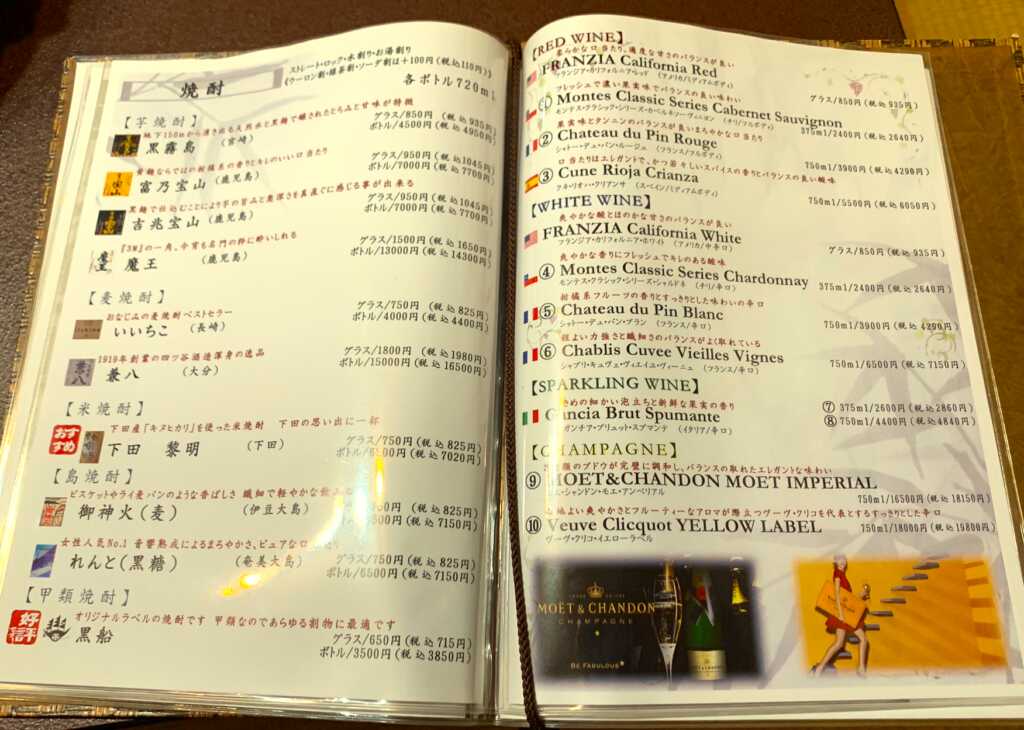 焼酎
ストレート・ロック・水割り・お湯割り
(ウーロン割・緑茶割・ソーダ割は+100円(税込110円))
各ボトル720ml
【芋焼酎】
地下150mから湧き出る天然水と黒麹で醸されたとろみと甘味が特徴
黒霧島 (宮崎)
グラス/850円 (税込935円)
ボトル/4500円 (税込4950円)
黄麹ならではの柑橘系の香りとキレのいい口当たり
富乃宝山 (鹿児島)
グラス/950円 (税込1045円)
ボトル/7000円 (税込7700円)
黒麹で仕込むことにより芋の旨みと奥深さを真直ぐに感じる事が出来る
吉兆宝山 (鹿児島)
グラス/950円 (税込1045円)
ボトル/7000円 (税込7700円)
『3M』の一角、今宵も名門の粋に酔いしれる
魔王 (鹿児島)
グラス/1500円 (税込1650円)
ボトル/13000円 (税込14300円)
【麦焼酎】
おなじみの麦焼酎ベストセラー
いいちこ (長崎)
グラス/750円 (税込825円)
ボトル/4000円 (税込4400円)
1919年創業の四ツ谷酒造渾身の逸品
兼八 (大分)
グラス/1800円 (税込1980円)
ボトル/15000円 (税込16500円)
【米焼酎】
おすすめ
下田産『キヌヒカリ』を使った米焼酎 下田の思い出に一杯
下田 黎明 (下田)
グラス/750円 (税込825円)
(税込7020円)
【島焼酎】
ビスケットやライ麦パンのような香ばしさ 繊細で軽やかな
御神火(麦) (伊豆大島)
(税込825円)
(税込7150円)
女性人気No.1 音響熟成によるまろやかさ、ピュアな
れんと(黒糖) (奄美大島)
グラス/750円 (税込825円)
ボトル/6500円 (税込7150円)
【甲類焼酎】
好評
オリジナルラベルの焼酎です 甲類なのであらゆる割物に最適です
黒船
グラス/650円 (税込715円)
ボトル/3500円 (税込3850円)
【RED WINE】
柔らかな口当たり、適度な甘さのバランスが良い
FRANZIA California Red
フランジア・カリフォルニア・レッド (アメリカ/ミディアムボディ)
グラス/850円 (税込935円)
フレッシュで濃い果実味でバランスの良い味わい
① Montes Classic Series Cabernet Sauvignon
モンテス・クラシック・シリーズ・カベルネ・ソーヴィニヨン (チリ/フルボディ)
375ml/2400円 (税込2640円)
果実味とタンニンのバランスが良いまろやかな口当たり
② Chateau du Pin Rouge
シャトー・デュ・パン・ルージュ (フランス/フルボディ)
750ml/3900円 (税込4290円)
口当たりはエレガントで、かつ若々しいスパイスの香りとバランスの良い酸味
③ Cune Rioja Crianza
クネ・リオハ・クリアンサ (スペイン/ミディアムボディ)
750ml/5500円 (税込6050円)
【WHITE WINE】
爽やかな酸とほのかな甘さのバランスが良い
FRANZIA California White
フランジア・カリフォルニア・ホワイト (アメリカ/中辛口)
グラス/850円 (税込935円)
爽やかな香りにフレッシュでキレのある酸味
④ Montes Classic Series Chardonnay
モンテス・クラシック・シリーズ・シャルドネ (チリ/辛口)
375ml/2400円 (税込2640円)
柑橘系フルーツの香りとすっきりとした味わいの辛口
⑤ Chateau du Pin Blanc
シャトー・デュ・パン・ブラン (フランス/辛口)
750ml/3900円 (税込4290円)
程よい力強さと繊細さのバランスがよく取れている
⑥ Chablis Cuvee Vieilles Vignes
シャブリ・キュヴェ・ヴィエイユ・ヴィーニュ (フランス/辛口)
750ml/6500円 (税込7150円)
【SPARKLING WINE】
きめの細かい泡立ちと新鮮な果実の香り
Gancia Brut Spumante
ガンチア・ブリュット・スプマンテ (イタリア/辛口)
⑦ 375ml/2600円 (税込2860円)
⑧ 750ml/4400円 (税込4840円)
【CHAMPAGNE】
種類のブドウが完璧に調和し、バランスの取れたエレガントな味わい
⑨ MOET&CHANDON MOET IMPERIAL
モエ・シャンドン・モエ・アンペリアル
750ml/16500円 (税込18150円)
心地よい爽やかさとフルーティーなアロマが際立つヴーヴ・クリコを代表とするすっきりとした辛口
⑩ Veuve Clicquot YELLOW LABEL
ヴーヴ・クリコ・イエローラベル
750ml/18000円 (税込19800円)
MOËT & CHANDON
CHAMPAGNE
BE FABULOUS